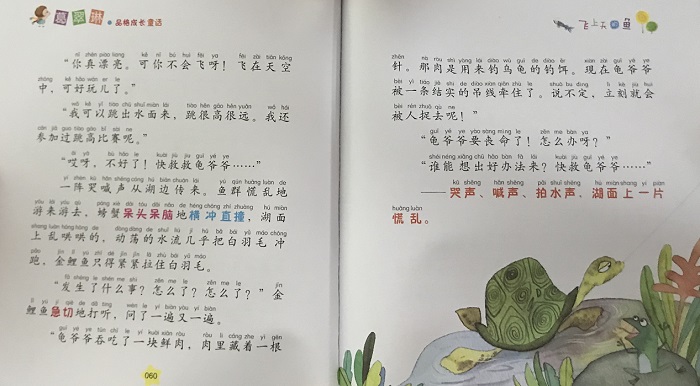 葛翠琳 • 品格成长童话
“你真漂亮。可你不会飞呀！飞在天空
中，可好玩儿了。”
“我可以跳出水面来，跳很高很远。我还
参加过跳高比赛呢。”
“哎呀，不好了！快救救龟爷爷……”
一阵哭喊声从湖边传来。鱼群慌乱地
游来游去，螃蟹呆头呆脑地横冲直撞，湖面
上乱哄哄的，动荡的水流几乎把白羽毛冲
跑，金鲤鱼只得紧紧拉住白羽毛。
“发生了什么事？怎么了？怎么了？”金
鲤鱼急切地打听，问了一遍又一遍。
“龟爷爷吞吃了一块鲜肉，肉里藏着一根
060
飞上天的鱼
针。那肉是用来钓乌龟的钓饵。现在龟爷爷
被一条结实的吊线牵住了。说不定，立刻就会
被人捉去呢！”
“龟爷爷要丧命了！怎么办呀？”
“谁能想出好办法来？快救龟爷爷……”
——哭声、喊声、拍水声，湖面上一片
慌乱。